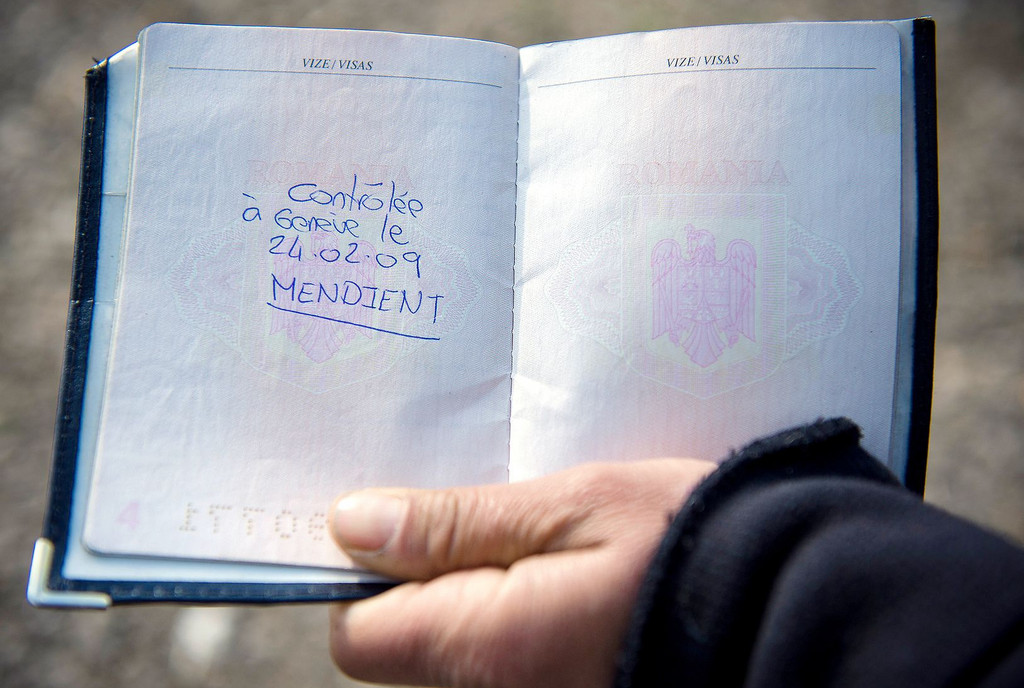 VIZE / VISAS
ROMANIA
Contrôlée
à Genève le
24.02.09
MENDIENT
4
VIZE / VISAS
ROMANIA